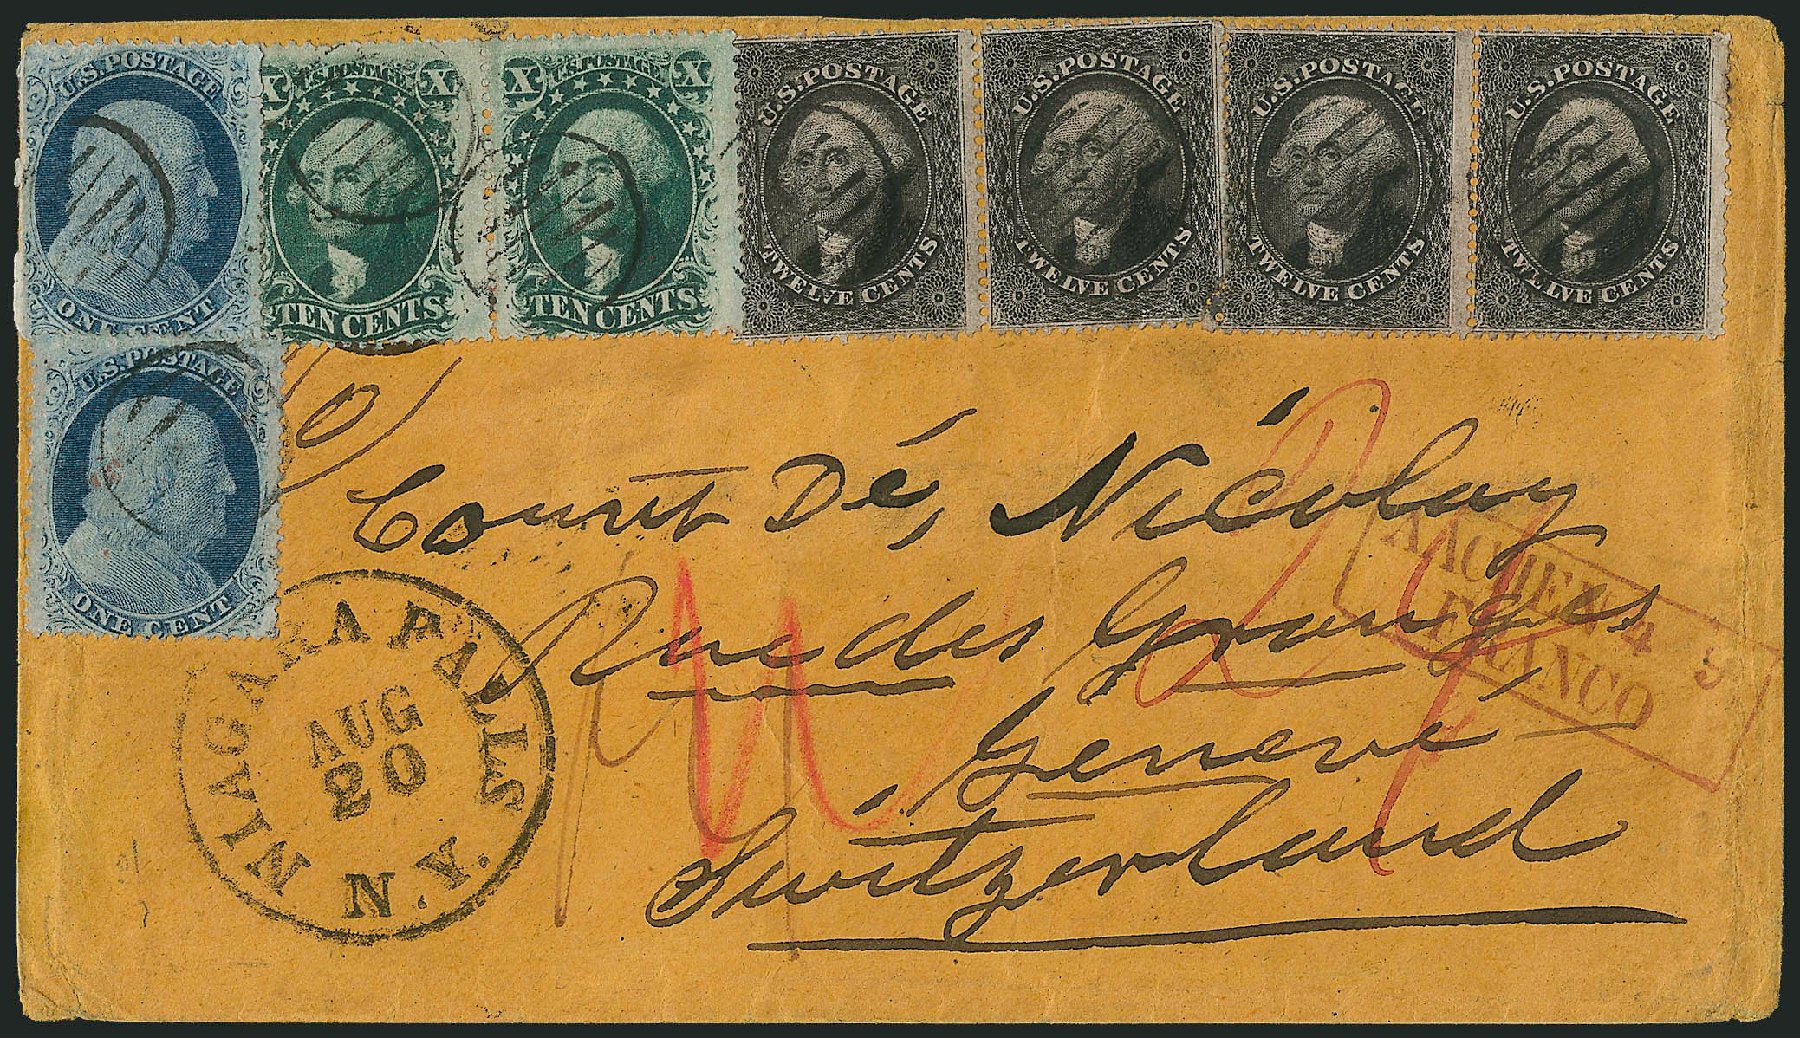 U.S. POSTAGE
ONE CENT
X U.S. POSTAGE X
TEN CENTS
X U.S. POSTAGE X
TEN CENTS
U.S. POSTAGE
TWELVE CENTS
U.S. POSTAGE
TWELVE CENTS
U.S. POSTAGE
TWELVE CENTS
U.S. POSTAGE
TWELVE CENTS
U.S. POSTAGE
ONE CENT
Count Dé, Nicolay
Rue des Granges
Geneve
Switzerland
AACHEN 4 9
FRANCO
NIAGARA FALLS
AUG
20
N.Y.